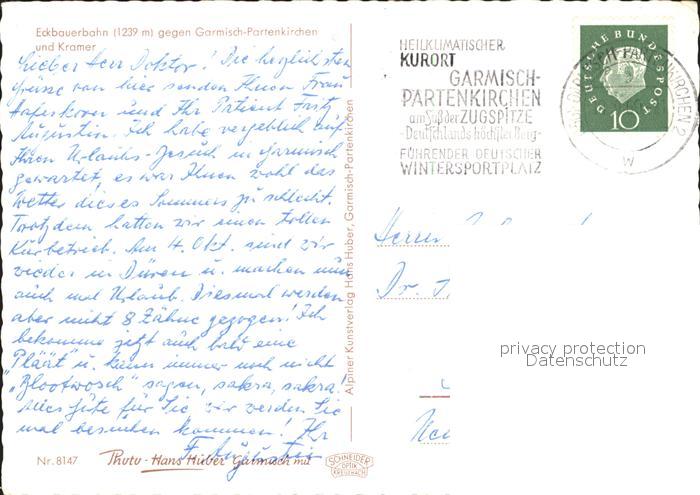 Eckbauerbahn (1239 m) gegen Garmisch-Partenkirchen
und Kramer
Lieber Herr Doktor! Die herzlichsten
Grüsse von hier senden Ihnen Frau
Haferkorn und Ihr Patient Fritz
Augustin. Ich habe vergeblich auf
Ihren Urlaubs-Besuch in Garmisch
gewartet, es war Ihnen wohl das
Wetter dieses Sommers zu schlecht.
Trotzdem hatten wir einen tollen
Kurbetrieb. Am 4. Okt. sind wir
wieder in Düren u. machen nun
auch mal Urlaub. Diesmal werden
aber nicht 8 Zähne gezogen! Ich
bekomme jetzt auch bald eine
"Pläät" u. kann immer noch nicht
"Blootwosch" sagen, sakra, sakra!
Alles Gute für Sie, wir werden Sie
mal besuchen kommen! Ihr
F. Augustin
Nr. 8147
Photo-Hans Huber Garmisch mit
SCHNEIDER
OPTIK
KREUZNACH
Alpiner Kunstverlag Hans Huber, Garmisch-Partenkirchen
HEILKLIMATISCHER
KURORT
GARMISCH-
PARTENKIRCHEN
am Fuß der ZUGSPITZE
-Deutschlands höchster Berg-
FÜHRENDER DEUTSCHER
WINTERSPORTPLATZ
DEUTSCHE BUNDESPOST
10
w
Herrn
Dr.
privacy protection
Datenschutz